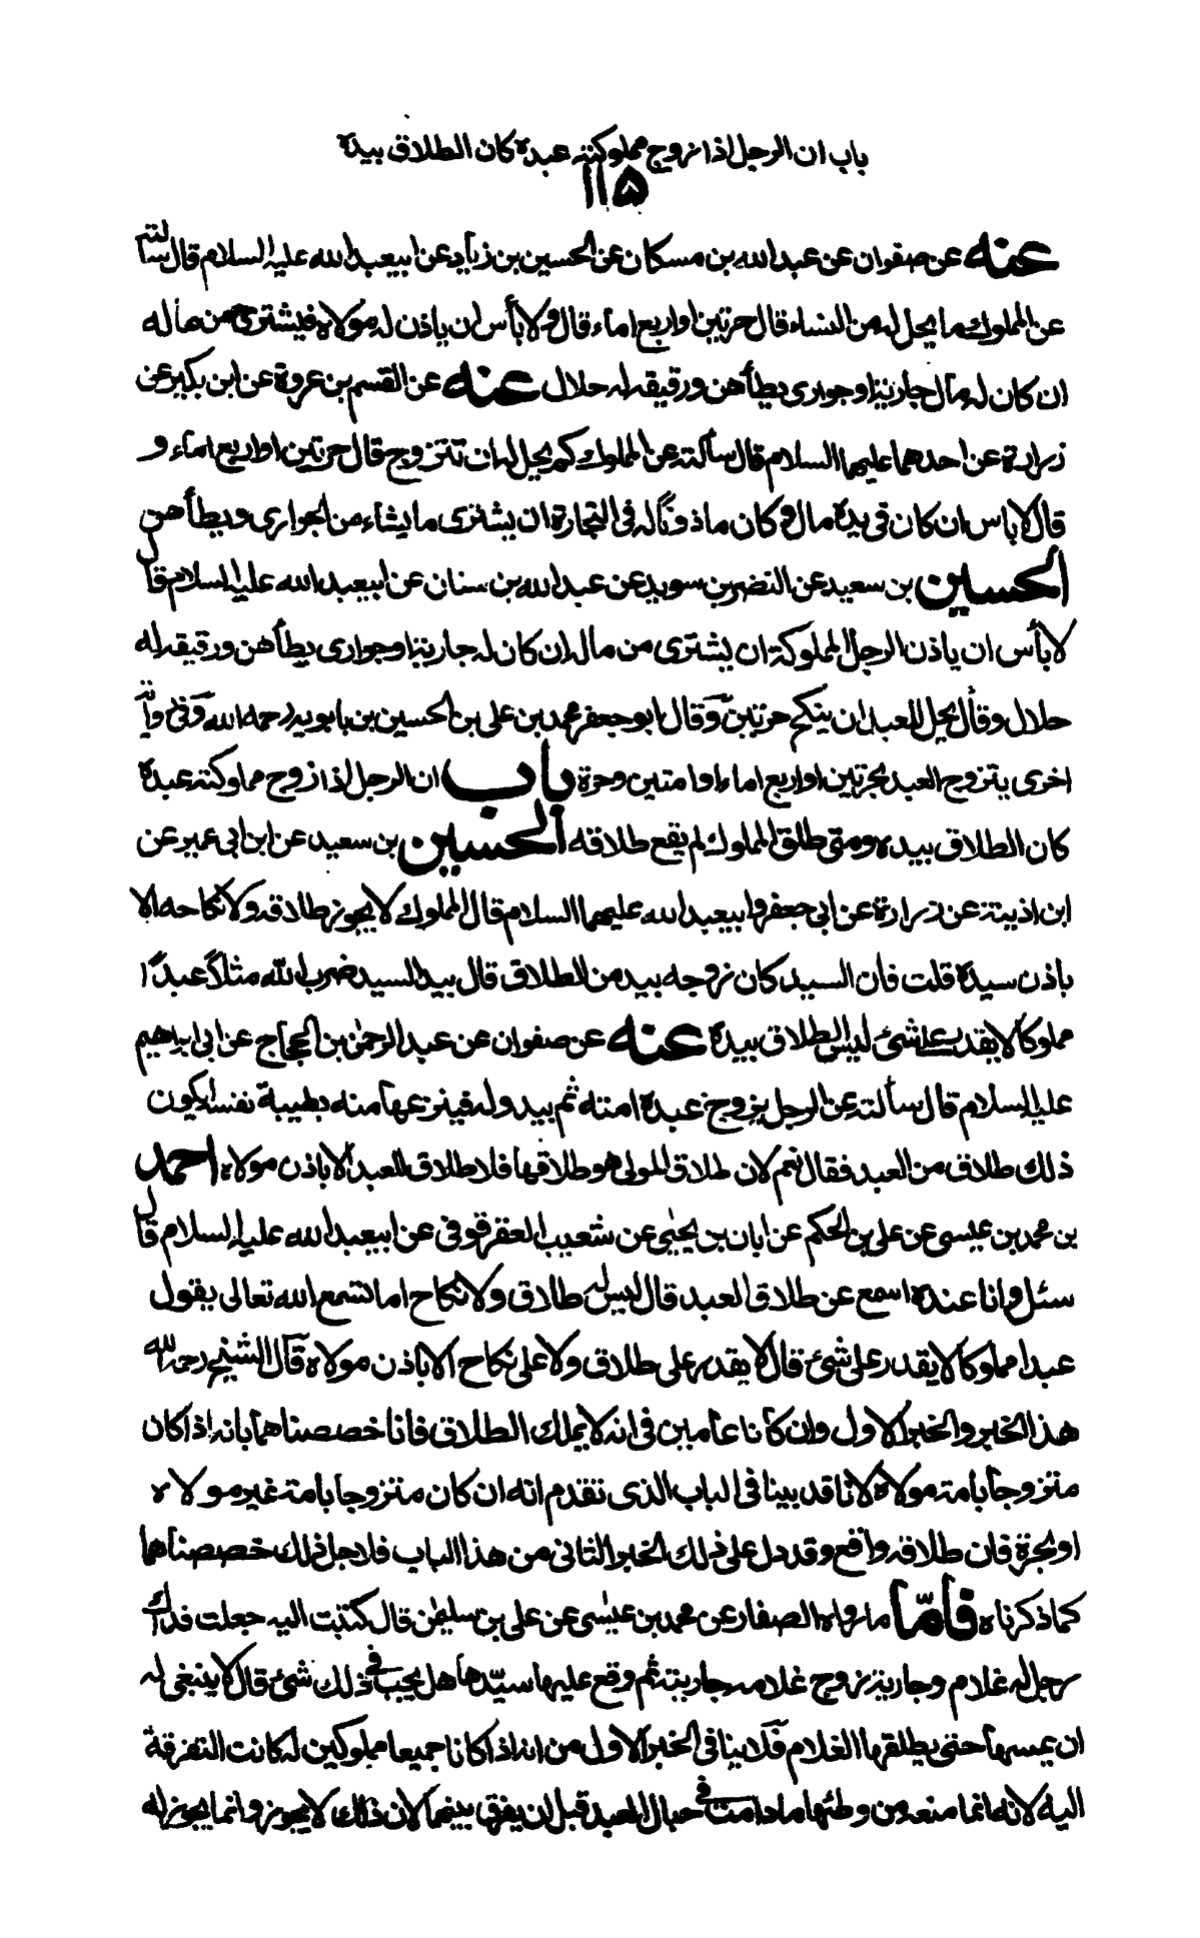 باب ان الرجل اذا زوج مملوكته عبده كان الطلاق بيده
١١٥
عنه عن صفوان عن عبد الله بن مسكان عن الحسين بن زياد عن ابيعبد الله عليه السلام قال سالته
عن المملوك ما يحل له من النساء قال حرتين او اربع اماء قال ولا بأس ان ياذن له مولاه فيشترى من ماله
ان كان له مال جارية او جوارى يطأهن ورقيقه له حلال عنه عن القسم بن عروة عن ابن بكير عن
زرارة عن احدهما عليهما السلام قال سألته عن المملوك كم يحل له ان تتزوج قال حرتين او اربع اماء و
قال لا باس ان كان فى يده مال وكان ماذونًا له فى التجارة ان يشترى ما يشاء من الجوارى ويطأهن
الحسين بن سعيد عن النضر بن سويد عن عبد الله بن سنان عن ابيعبد الله عليه السلام قال
لا بأس ان ياذن الرجل المملوكة ان يشترى من ماله ان كان له جارية او جوارى يطأهن ورقيقه له
حلال وقال يحل للعبد ان ينكح حرتين وقال ابو جعفر محمد بن على بن الحسين بن بابويه رحمه الله وفى رواية
اخرى يتزوج العبد بحرتين او اربع اماء او امتين وحرة باب ان الرجل اذا زوج مملوكته عبده
كان الطلاق بيده ومتى طلق المملوك لم يقع طلاقه الحسين بن سعيد عن ابن ابى عمير عن
ابن اذينة عن زرارة عن ابى جعفر وابيعبد الله عليهما السلام قال المملوك لا يجوز طلاقه ولا نكاحه الا
باذن سيده قلت فأن السيد كان زوجه بيد من الطلاق قال بيد السيد ضرب الله مثلاً عبدًا
مملوكا لا يقدر على شئ ليس الطلاق بيده عنه عن صفوان عن عبد الرحمن بن الحجاج عن ابى ابراهيم
عليه السلام قال سألته عن الرجل يزوج عبده امته ثم يبدو له فينزعها منه بطيبة نفسه ايكون
ذلك طلاق من العبد فقال نعم لان طلاق المولى هو طلاقها فلا طلاق للعبد الا باذن مولاه احمد
بن محمد بن عيسى عن على بن الحكم عن ابان بن يحيى عن شعيب العقرقوفى عن ابيعبد الله عليه السلام قال
سئل وانا عنده اسمع عن طلاق العبد قال ليس له طلاق ولا نكاح اما تسمع الله تعالى يقول
عبدا مملوكا لا يقدر على شئ قال لا يقدر على طلاق ولا على نكاح الا باذن مولاه قال الشيخ رحمه الله
هذا الخبر والخبر الاول وان كانا عامين فى انه لا يملك الطلاق فانا خصصناهما بانه اذا كان
متزوجا بامة مولاه لانا قد بينا فى الباب الذى تقدم انه ان كان متزوجا بامة غير مولاه
او بحرة فان طلاقه واقع وقد دل على ذلك الخبر الثانى من هذا الباب فلاجل ذلك خصصناهما
كما ذكرناه فامّا ما رواه الصفار عن محمد بن عيسى عن على بن سليمن قال كتبت اليه جعلت فداك
رجل له غلام وجارية زوج غلامه جاريته ثم وقع عليها سيّدها هل يجب فى ذلك شئ قال لا ينبغى له
ان يمسها حتى يطلقها الغلام فلا ينافى الخبر الاول من انه اذا كانا جميعا مملوكين له كانت التفرقة
اليه لانه انما منعه من وطئها ما دامت فى حبال العبد قبل ان يفرق بينهما لان ذلك لا يجوز وانما يجوز له